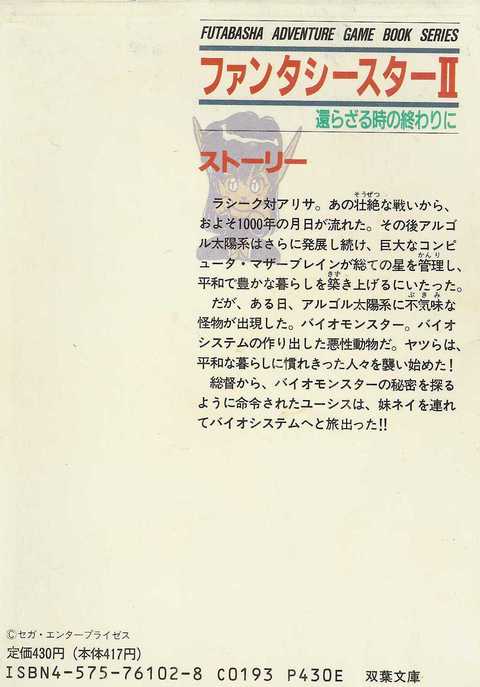 FUTABASHA ADVENTURE GAME BOOK SERIES
ファンタシースターII
還らざる時の終わりに
ストーリー
ラシーク対アリサ。あの壮絶な戦いから、
およそ1000年の月日が流れた。その後アルゴ
ル太陽系はさらに発展し続け、巨大なコンピ
ュータ・マザーブレインが総ての星を管理し、
平和で豊かな暮らしを築き上げるにいたった。
だが、ある日、アルゴル太陽系に不気味な
怪物が出現した。バイオモンスター。バイオ
システムの作り出した悪性動物だ。ヤツらは、
平和な暮らしに慣れきった人々を襲い始めた!
総督から、バイオモンスターの秘密を探る
ように命令されたユーシスは、妹ネイを連れ
てバイオシステムへと旅出った!!
©セガ・エンタープライゼス
定価430円(本体417円)
ISBN4-575-76102-8 C0193 P430E 双葉文庫